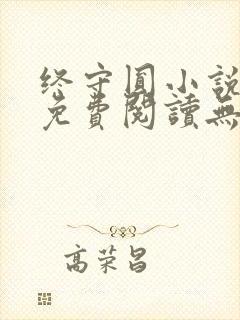 终守圓小說
免費閱讀無
高荣昌